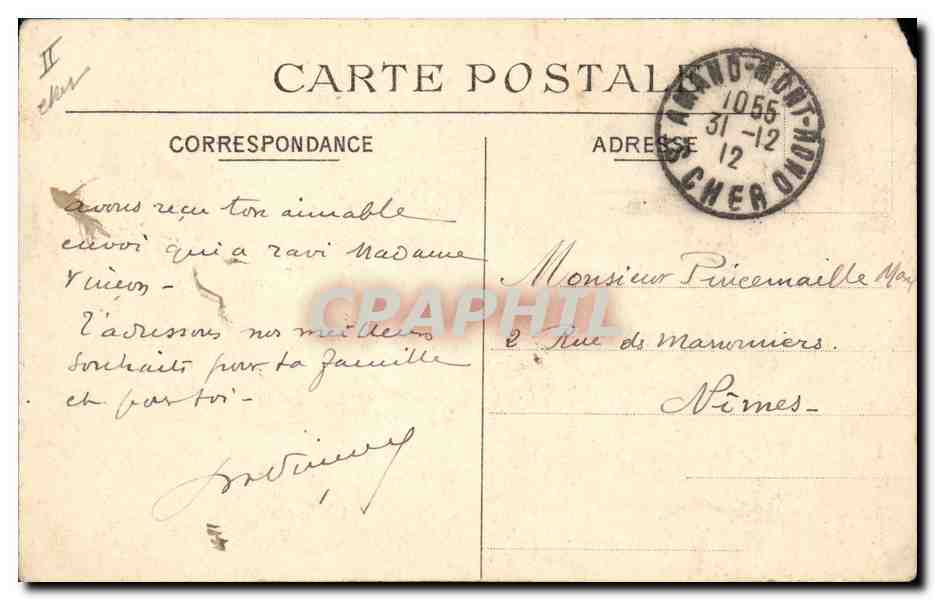 II
cher
CARTE POSTALE
CORRESPONDANCE
ADRESSE
ST AMAND-MONT-MOND
1055
31 -12
12
CHER
avons reçu ton aimable
envoi qui a ravi Madame
t'adressons nos meilleurs
souhaits pour ta famille
et pour toi -
Monsieur Pincemaille
2 Rue des Marronniers.
Nîmes -
CPAPHIL